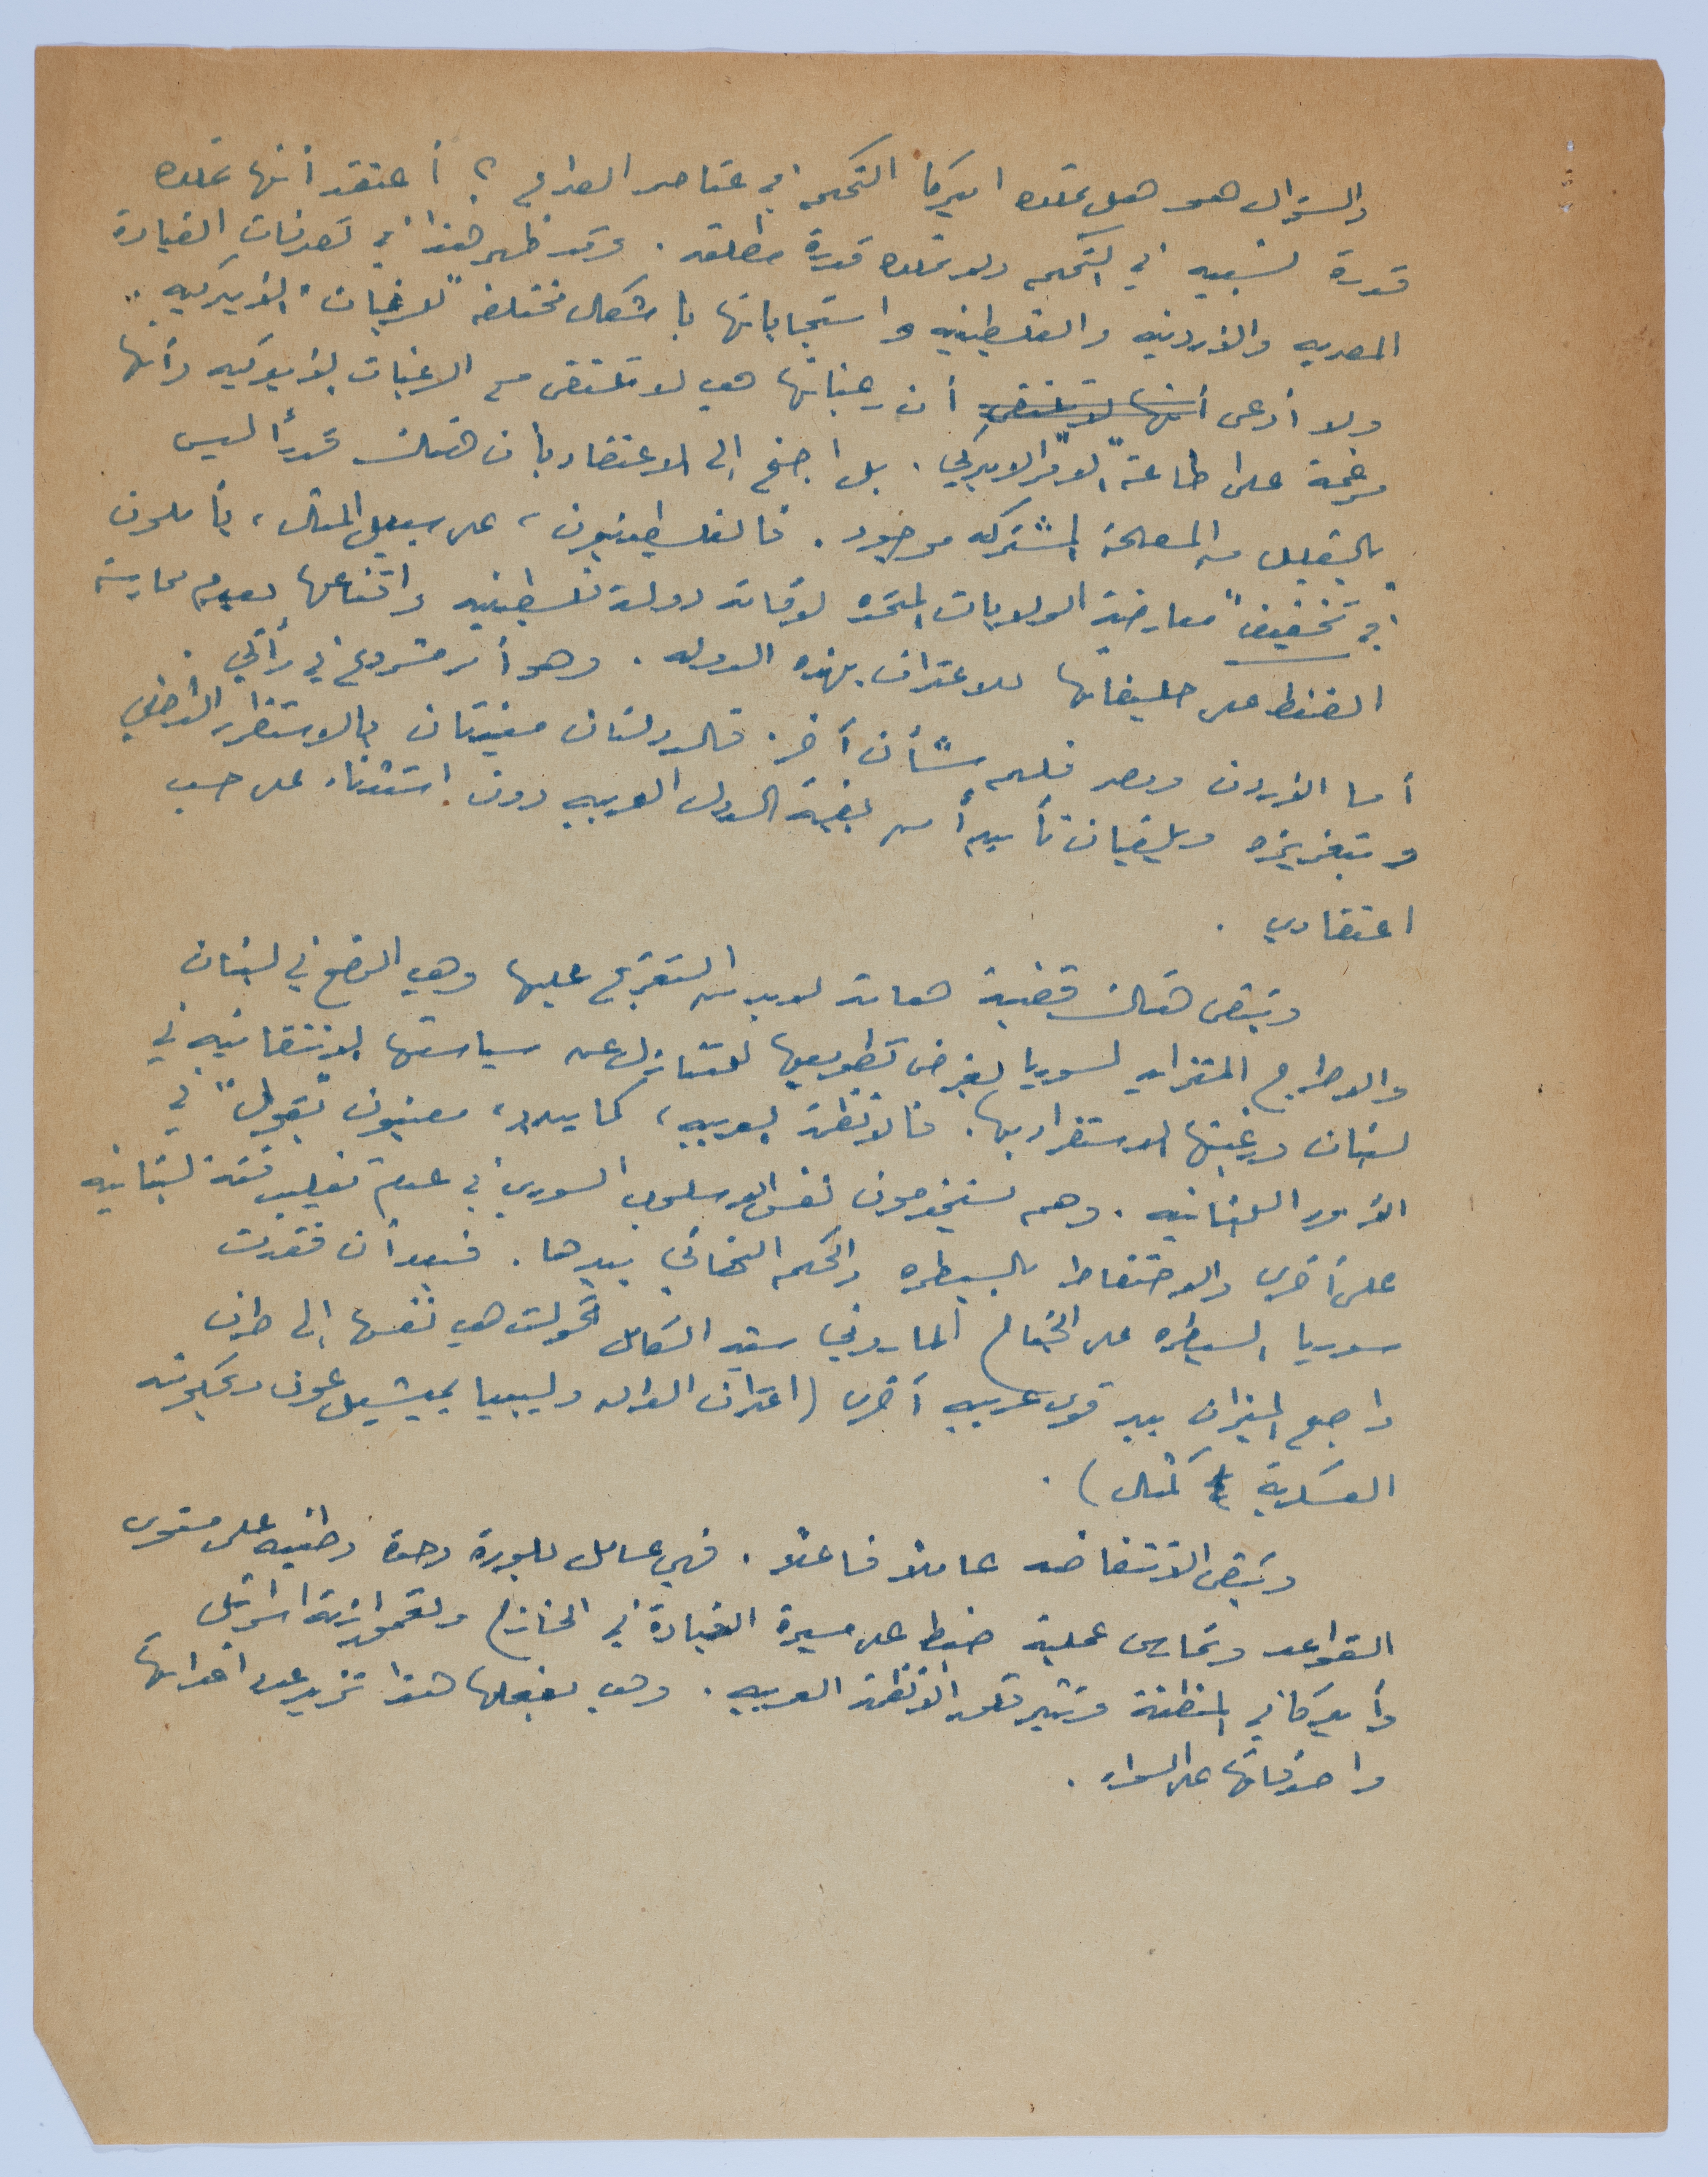 والسؤال هو هل تملك اميركا التحكم في عناصر الصراع ؟ أعتقد أنها تملك
قدرة نسبيه في التحكم ولا تملك قدرة مطلقه . وقد ظهر هذا في تصرفات القيادة
المصريه والأردنيه والفلسطينيه واستجاباتها بأشكال مختلفه "لرغبات" الأميركيه ..
ولا أدعي أنها لا تلتقي أن رغباتها هي لا تلتقي مع الرغبات الأميركيه وأنها
مرغمة على طاعة "الأمر" الاميركي . بل اجنح إلى الاعتقاد بأن هناك قدراً ليس
بالقليل من المصلحة المشتركه موجود . فالفلسطينيون ، على سبيل المثال ، يأملون
في "تخفيف" معارضة الولايات المتحده لإقامة دولة فلسطينيه واقناعها بعدم ممارسة
الضغط على حليفاتها للاعتراف بهذه الدوله . وهو أمر مشروع في رأيي .
أما الأردن ومصر فلهم شأن أخر . فالدولتان معنيتان بالاستقرار الداخلي
وتعزيزه ويلقيان تأييداً من بقية الدول العربيه دون استثناء على حسب
اعتقادي .
وتبقى هناك قضية هامة لا بد من التعريج عليها وهي الوضع في لبنان
والاحراج المتزايد لسوريا بغرض تطويعها للتنازل عن سياستها الانتقائيه في
لبنان ورغبتها الاستفراد بها . فالأنظمة العربيه ، كما يبدو ، معنيون "بتدويل" في
الأمور اللبنانيه . وهم يستخدمون نفس الاسلوب السوري في عدم تغليب فئة لبنانيه
على أخرى والاحتفاظ بالسيطره والحكم النهائي بيدها . فبعد أن فقدت
سوريا السيطره على الجناح الماروني بشبه الكامل تحولت هي نفسها إلى طرف
واصبح الميزان بيد قوى عربيه أخرى (اعتراف العراق وليبيا بميشيل عون وبحكومته
العسكرية كمثال) .
وتبقى الانتفاضه عاملاً فاعلاً . فهي عامل لبلورة وحدة وطنيه على مستوى
القواعد وتمارس عملية ضغط على مسيرة القيادة في الخارج وتعمق أزمة اسرائيل
وأميركا في المنطقة وتثير قلق الأنظمة العربيه . وهي بفعلها هذا تزيد عدد اعدائها
واصدقائها على السواء .